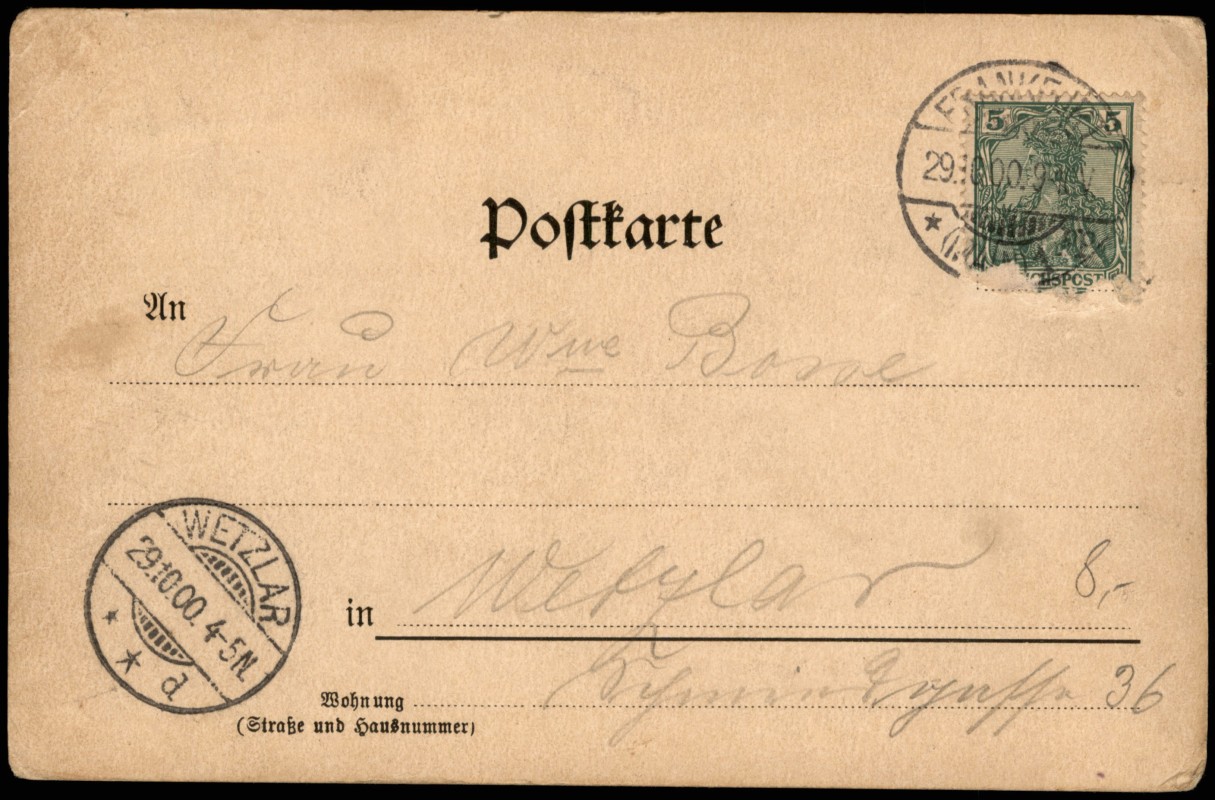 FRANKFU
29.10.00. 9
(MAIN)
5 5
CHSPOST
Postkarte
An
Frau Wwe Bove
in Wetzlar
8,-
Wohnung 36
(Straße und Hausnummer)
WETZLAR
29.10.00. 4-5N.
d